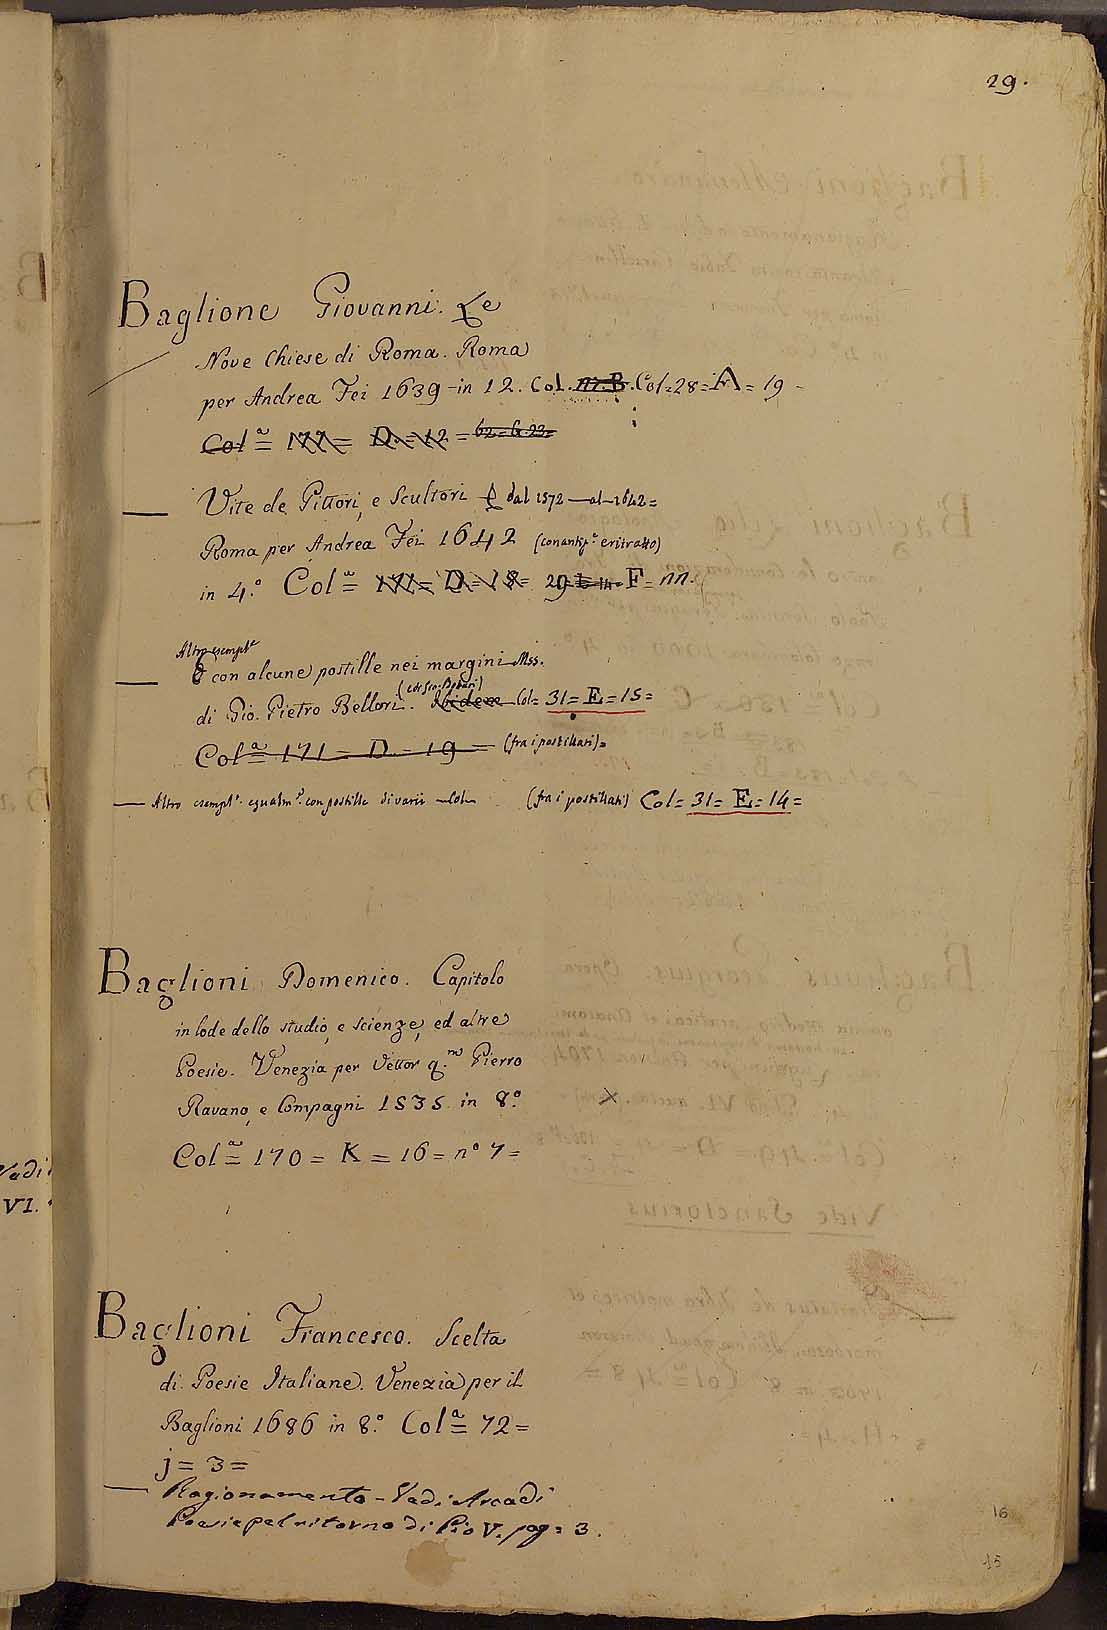 29.
Baglione Giovanni. Le
Nove Chiese di Roma. Roma
per Andrea Fei 1639 in 12. Col. Col=28=A=19-
Col.a = 177= D.=12=
— Vite de Pittori, e Scultori dal 1572 — al 1642=
Roma per Andrea Fei 1642 (con antip.a e ritratto)
in 4.o Col.a = 171= D=18= 29 F=11.
Altro esempl.e
— con alcune postille nei margini Mss.
di Gio. Pietro Bellori. Ibidem Col= 31=E=15=
Col.a = 171= D.= 19 = (fra i postillati)=
— Altro esempl.e egualm.e con postille di varii Col (fra i postillati) Col=31=E=14=
Baglioni Domenico. Capitolo
in lode dello studio, e scienze, ed altre
Poesie. Venezia per Vettor q.m Pierro
Ravano, e Compagni 1535 in 8.o
Col.a = 170= K=16= no 7=
Vadi
VI.
Baglioni Francesco. Scelta
di Poesie Italiane. Venezia per il
Baglioni 1686 in 8.o Col.a = 72=
j=3=
— Ragionamento - Vedi Arcadi
Poesie pel ritorno di Pio V. pag= 3.
16
15